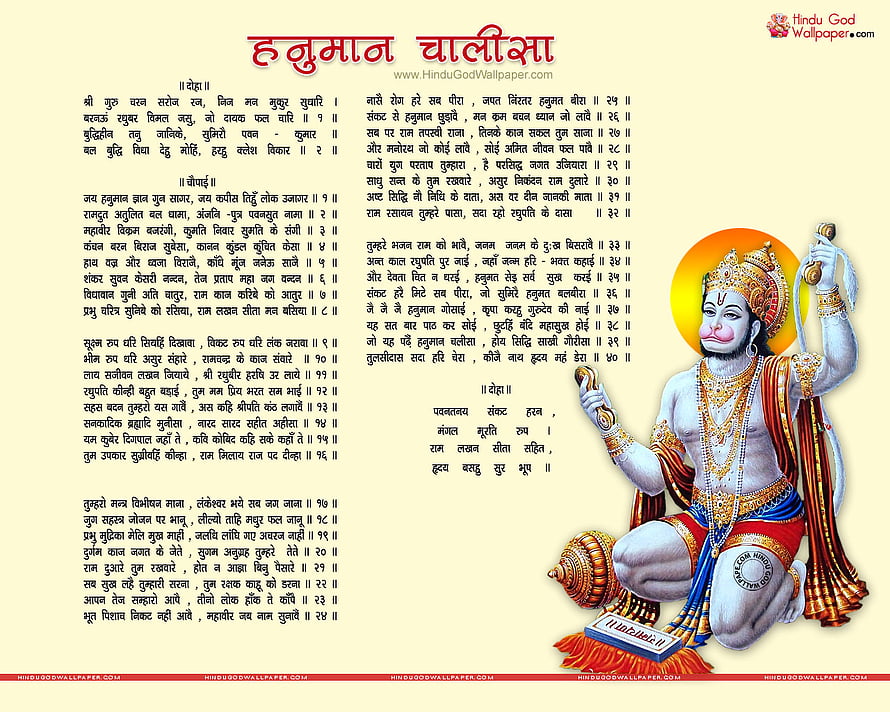 Hindu God
Wallpaper.com
हनुमान चालीसा
www.HinduGodWallpaper.com
॥ दोहा ॥
श्री गुरु चरन सरोज रज, निज मन मुकुर सुधारि ।
बरनऊं रघुबर विमल जसु, जो दायक फल चारि ॥ १ ॥
बुद्धिहीन तनु जानिके, सुमिरौ पवन - कुमार ॥
बल बुद्धि विधा देहु मोहिं, हरहु क्लेश विकार ॥ २ ॥
॥ चौपाई ॥
जय हनुमान ज्ञान गुन सागर, जय कपीस तिहुँ लोक उजागर ॥ १ ॥
रामदुत अतुलित बल धामा, अंजनि -पुत्र पवनसुत नामा ॥ २ ॥
महावीर विक्रम बजरंगी, कुमति निवार सुमति के संगी ॥ ३ ॥
कंचन बरन बिराज सुबेसा, कानन कुंडल कुंचित केसा ॥ ४ ॥
हाथ वज्र और ध्वजा विराजै, काँधे मूंज जनेऊ साजै ॥ ५ ॥
शंकर सुवन केसरी नन्दन, तेज प्रताप महा जग वन्दन ॥ ६ ॥
विधाबान गुनी अति चातुर, राम काज करिबे को आतुर ॥ ७ ॥
प्रभु चरित्र सुनिबे को रसिया, राम लखन सीता मन बसिया ॥ ८ ॥
सूक्ष्म रुप धरि सियहिं दिखावा , विकट रुप धरि लंक जरावा ॥ ९ ॥
भीम रुप धरि असुर संहारे , रामचन्द्र के काज संवारे ॥ १० ॥
लाय सजीवन लखन जियाये , श्री रघुबीर हरषि उर लाये ॥ ११ ॥
रघुपति कीन्ही बहुत बड़ाई , तुम मम प्रिय भरत सम भाई ॥ १२ ॥
सहस बदन तुम्हरो यस गावैं , अस कहि श्रीपति कंठ लगावैं ॥ १३ ॥
सनकादिक ब्रह्मादि मुनीसा , नारद सारद सहीत अहीसा ॥ १४ ॥
यम कुबेर दिगपाल जहाँ ते , कवि कोबिद कहि सके कहाँ ते ॥ १५ ॥
तुम उपकार सुग्रीवहिं कीन्हा , राम मिलाय राज पद दीन्हा ॥ १६ ॥
तुम्हरो मन्त्र विभीषन माना , लंकेश्वर भये सब जग जाना ॥ १७ ॥
जुग सहस्त्र जोजन पर भानू , लील्यो ताहि मधुर फल जानू ॥ १८ ॥
प्रभु मुद्रिका मेलि मुख माहीं , जलधि लांघि गए अचरज नाहीं ॥ १९ ॥
दुर्गम काज जगत के जेते , सुगम अनुग्रह तुम्हरे तेते ॥ २० ॥
राम दुआरे तुम रखवारे , होत न आज्ञा बिनु पैसारे ॥ २१ ॥
सब सुख लहै तुम्हारी सरना , तुम रक्षक काहू को डरना ॥ २२ ॥
आपन तेज सम्हारो आपै , तीनो लोक हाँक ते काँपै ॥ २३ ॥
भूत पिशाच निकट नहीं आवै , महावीर जब नाम सुनावैं ॥ २४ ॥
नासै रोग हरे सब पीरा , जपत निंरतर हनुमत बीरा ॥ २५ ॥
संकट से हनुमान छुड़ावै , मन क्रम बचन ध्यान जो लावै ॥ २६ ॥
सब पर राम तपस्वी राजा , तिनके काज सकल तुम साजा ॥ २७ ॥
और मनोरथ जो कोई लावै , सोई अमित जीवन फल पावै ॥ २८ ॥
चारों युग परताप तुम्हारा , है परसिद्ध जगत उजियारा ॥ २९ ॥
साधु सन्त के तुम रखवारे , असुर निकंदन राम दुलारे ॥ ३० ॥
अष्ट सिद्धि नौ निधि के दाता, अस वर दीन जानकी माता ॥ ३१ ॥
राम रसायन तुम्हरे पासा, सदा रहो रघुपति के दासा ॥ ३२ ॥
तुम्हरे भजन राम को भावै, जनम जनम के दुःख बिसरावै ॥ ३३ ॥
अन्त काल रघुपति पुर जाई , जहाँ जन्म हरि - भक्त कहाई ॥ ३४ ॥
और देवता चित न धरई , हनुमत सेइ सर्व सुख करई ॥ ३५ ॥
संकट हरै मिटे सब पीरा, जो सुमिरै हनुमत बलबीरा ॥ ३६ ॥
जै जै जै हनुमान गोसाई , कृपा करहु गुरुदेव की नाई ॥ ३७ ॥
यह सत बार पाठ कर सोई , छुटहिं बंदि महासुख होई ॥ ३८ ॥
जो यह पढ़ैं हनुमान चलीसा , होय सिद्धि साखी गौरीसा ॥ ३९ ॥
तुलसीदास सदा हरि चेरा , कीजै नाथ हृदय महं डेरा ॥ ४० ॥
॥ दोहा ॥
पवनतनय संकट हरन ,
मंगल मूरति रुप ।
राम लखन सीता सहित ,
हृदय बसहु सुर भूप ॥
HINDU GOD WALLPAPE.COM
HINDUGODWALLPAPER.COM HINDUGODWALLPAPER.COM HINDUGODWALLPAPER.COM HINDUGODWALLPAPER.COM HINDUGODWALLPAPER.COM